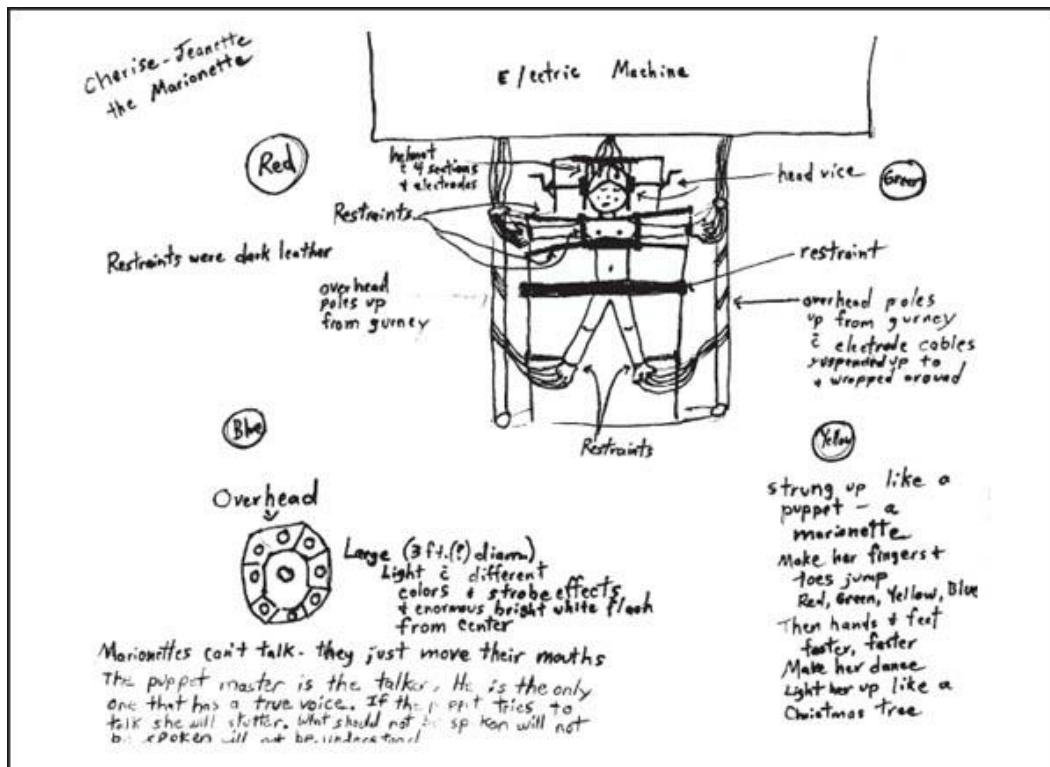 Cherise-Jeanette
the Marionette
Electric Machine
Red
helmet
c̄ 4 sections
+ electrodes
head vice
Green
Restraints
Restraints were dark leather
restraint
overhead
poles up
from gurney
overhead poles
up from gurney
c̄ electrode cables
suspended up to
+ wrapped around
Blue
Restraints
Yellow
Overhead
Large (3 ft.(?) diam.)
Light c̄ different
colors + strobe effects
+ enormous bright white flash
from center
strung up like a
puppet - a
marionette
Make her fingers +
toes jump
Red, Green, Yellow, Blue
Then hands + feet
faster, faster
Make her dance
Light her up like a
Christmas tree
Marionettes can't talk - they just move their mouths
The puppet master is the talker. He is the only
one that has a true voice. If the puppet tries to
talk she will stutter. What should not be spoken will not
be spoken will not be understood